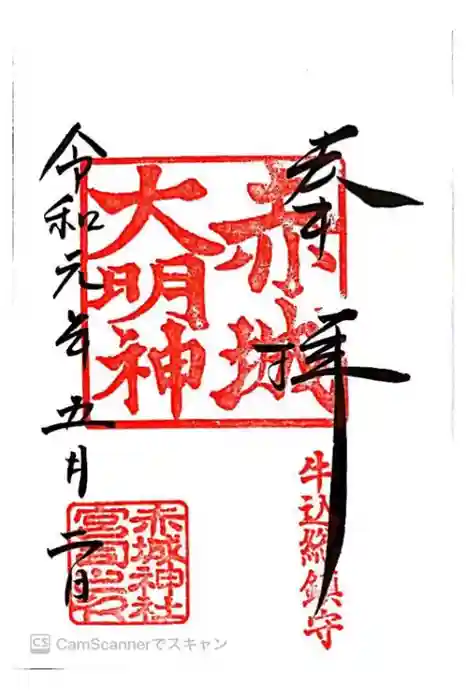 奉拝
赤城
大明神
牛込総鎮守
令和元年五月二日
赤城神社
CS CamScannerでスキャン